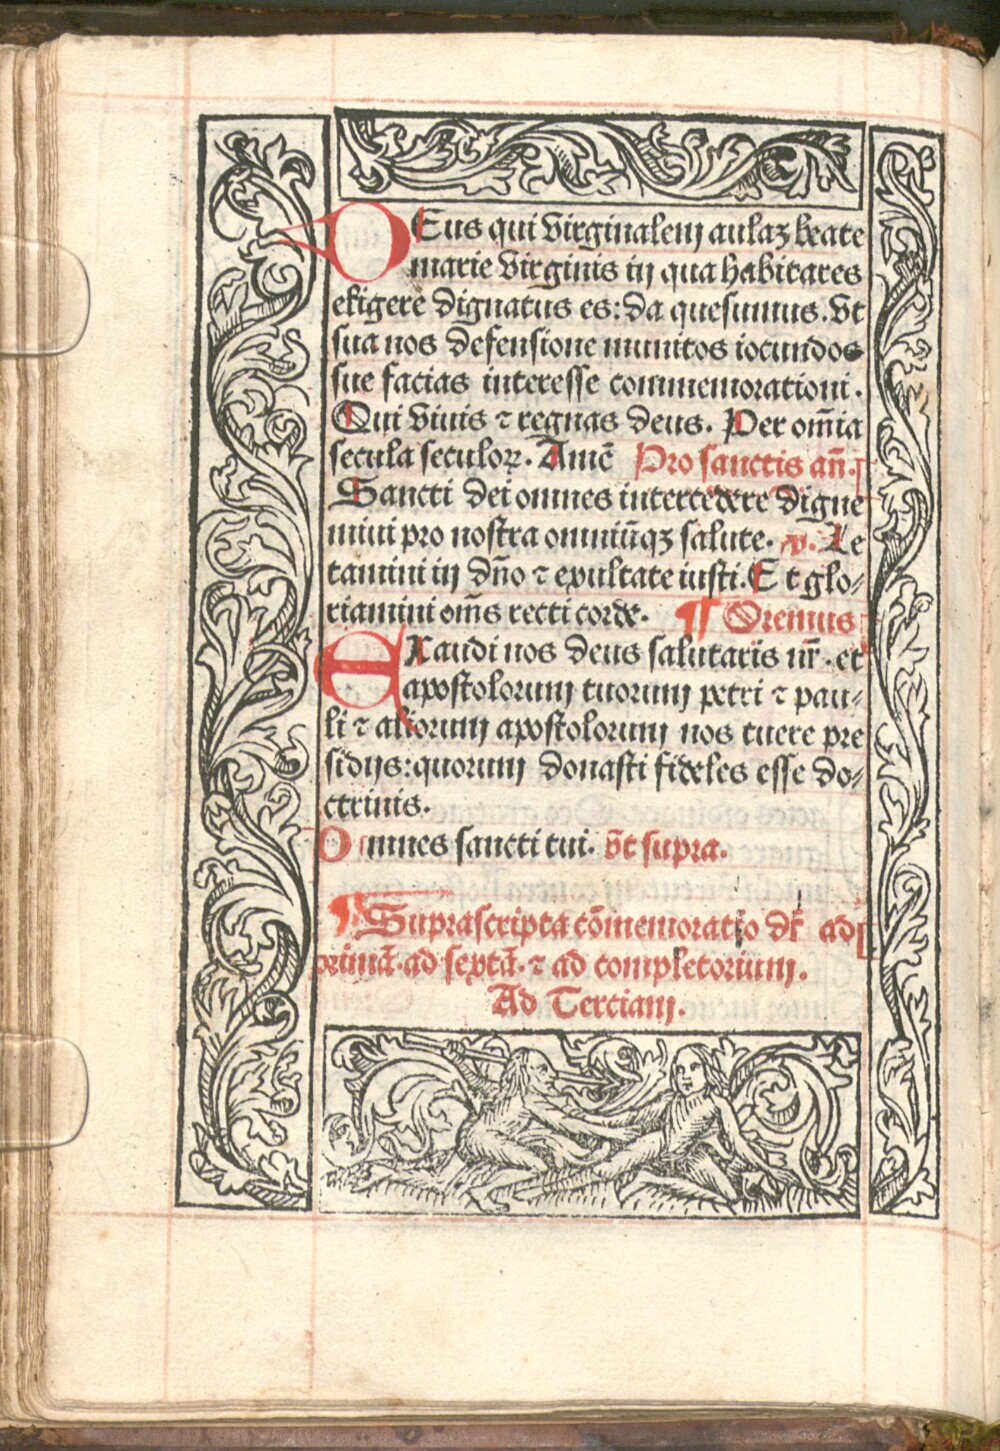 DEus qui virginalem aulaʒ beate
marie virginis in qua habitares
eligere dignatus es: da quesumus. vt
sua nos defensione munitos iocundos
sue facias interesse commemorationi.
Qui viuis ⁊ regnas deus. Per om̄ia
secula seculoꝝ. Amē Pro sanctis an̄.
Sancti dei omnes intercedere digne
mini pro nostra omniūqʒ salute. ℣. Le
tamini in dn̄o ⁊ exultate iusti. Et glo⸗
riamini om̄s recti corde. ¶ Oremus
EXaudi nos deus salutaris nr̄. et
apostolorum tuorum petri ⁊ pau⸗
li ⁊ aliorum apostolorum nos tuere pre
sidijs: quorum donasti fideles esse do⸗
ctrinis.
Omnes sancti tui. vt̄ supra.
¶ Suprascripta cōmemoratio dr̄ ad
primā. ad sextā. ⁊ ad completorium.
Ad Terciam.